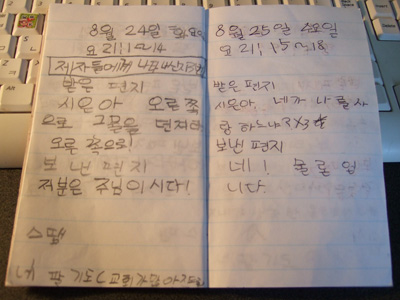 8월 24일 화요일
요 21:1~14
제자들에게 나타나신
받은 편지
시몬아 오른쪽
으로 그물을 던져라
오른쪽으로!
보낸 편지
저분은 주님이시다!
스팸
8월 25일 수요일
요 21:15~18
받은 편지
시몬아, 네가 나를 사
랑하느냐 x3
보낸 편지
네! 물론입
니다.